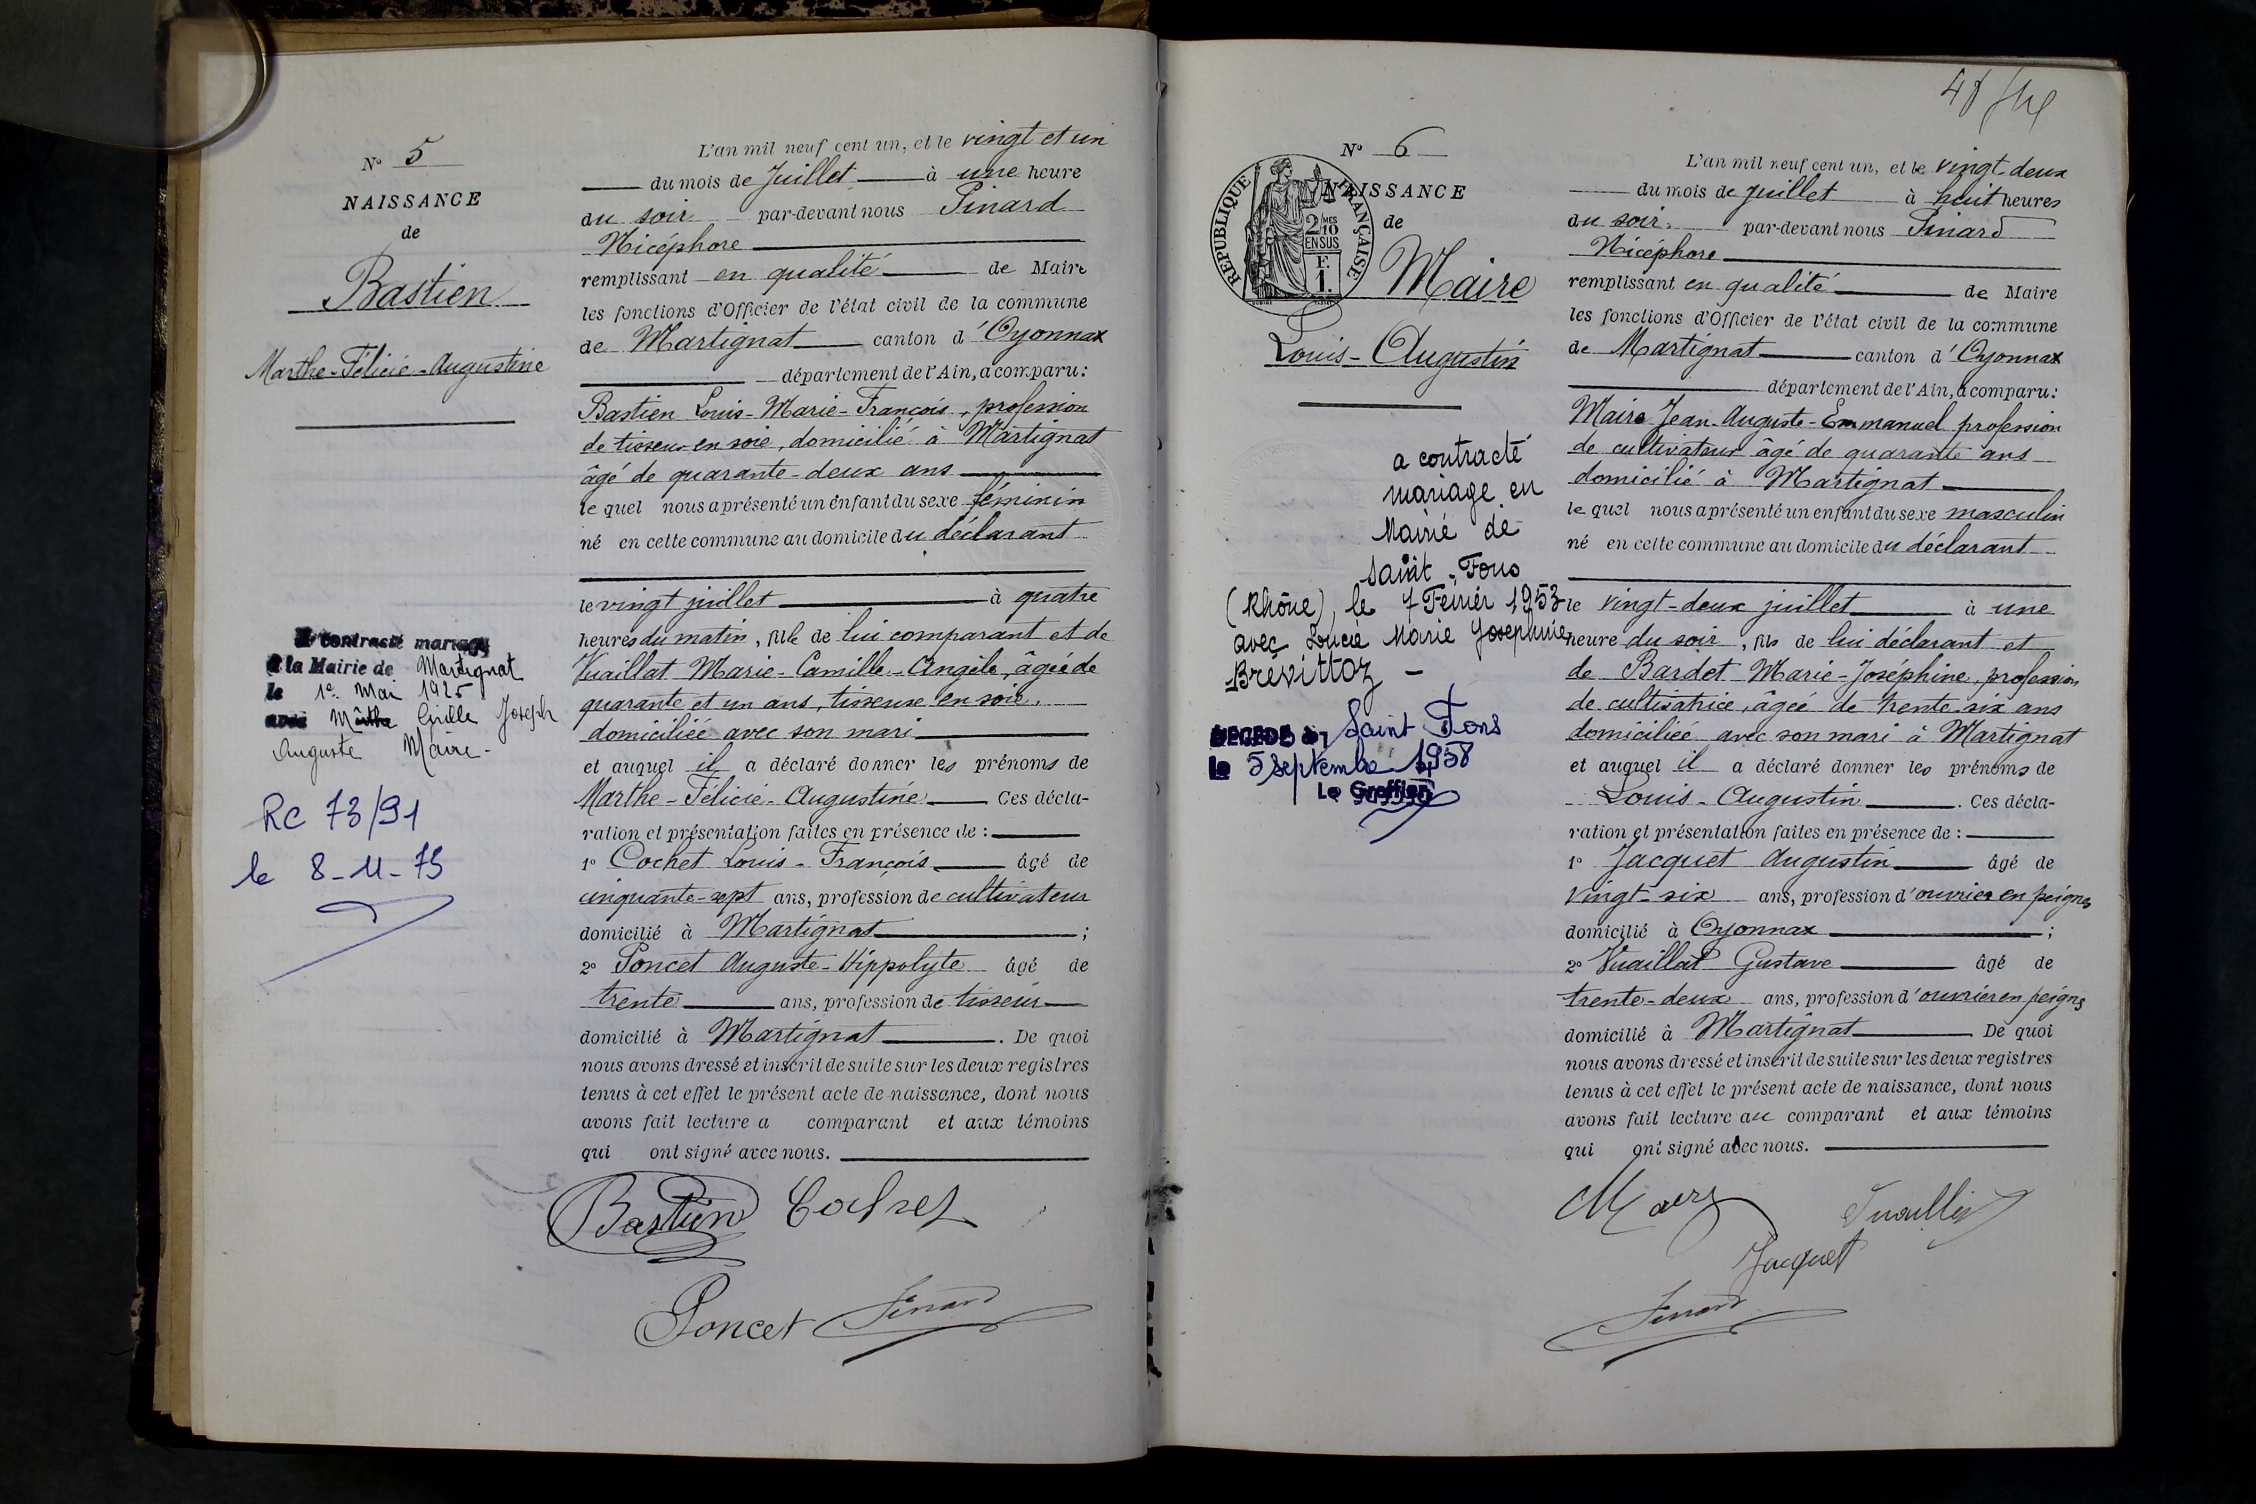 N° 5
NAISSANCE
de
Bastien
Marthe-Félicie-Augustine
A contracté mariage
à la Mairie de Martignat
le 1er Mai 1925
avec Marthe Cyrille Joseph
Auguste Maire-
RC 73/91
le 8-11-73
L'an mil neuf cent un, et le vingt et un
du mois de Juillet à une heure
du soir par-devant nous Pinard
Nicéphore
remplissant en qualité de Maire
les fonctions d'Officier de l'état civil de la commune
de Martignat canton d'Oyonnax
département de l'Ain, a comparu:
Bastien Louis-Marie-François, profession
de tisseur en soie, domicilié à Martignat
âgé de quarante-deux ans
le quel nous a présenté un enfant du sexe féminin
né en cette commune au domicile du déclarant
le vingt juillet à quatre
heures du matin, fille de lui comparant et de
Vuaillat Marie-Camille-Angèle, âgée de
quarante et un ans, tisseuse en soie,
domiciliée avec son mari
et auquel il a déclaré donner les prénoms de
Marthe-Félicie-Augustine Ces décla-
ration et présentation faites en présence de :
1° Cochet Louis-François âgé de
cinquante-sept ans, profession de cultivateur
domicilié à Martignat ;
2° Poncet Auguste-Hippolyte âgé de
trente ans, profession de tisseur
domicilié à Martignat. De quoi
nous avons dressé et inscrit de suite sur les deux registres
tenus à cet effet le présent acte de naissance, dont nous
avons fait lecture a comparant et aux témoins
qui ont signé avec nous.
Bastien Cochet
Poncet Pinard
48
N° 6
NAISSANCE
de
RÉPUBLIQUE FRANÇAISE
2 MES
10
EN SUS
F.
1.
Maire
Louis-Augustin
a contracté
mariage en
Mairie de
Saint-Fons
(Rhône), le 7 Février 1953
avec Lucie Marie Josephine
Brévittoz -
DÉCÉDÉ à Saint Fons
le 5 septembre 1958
Le Greffier
L'an mil neuf cent un, et le vingt-deux
du mois de juillet à huit heures
du soir par-devant nous Pinard
Nicéphore
remplissant en qualité de Maire
les fonctions d'Officier de l'état civil de la commune
de Martignat canton d'Oyonnax
département de l'Ain, a comparu:
Maire Jean-Auguste-Emmanuel profession
de cultivateur âgé de quarante ans
domicilié à Martignat
le quel nous a présenté un enfant du sexe masculin
né en cette commune au domicile du déclarant
le vingt-deux juillet à une
heure du soir, fils de lui déclarant et
de Bardet Marie-Joséphine, profession
de cultivatrice, âgée de trente-six ans
domiciliée avec son mari à Martignat
et auquel il a déclaré donner les prénoms de
Louis-Augustin. Ces décla-
ration et présentation faites en présence de :
1° Jacquet Augustin âgé de
vingt-six ans, profession d'ouvrier en peignes
domicilié à Oyonnax ;
2° Vuaillat Gustave âgé de
trente-deux ans, profession d'ouvrier en peignes
domicilié à Martignat De quoi
nous avons dressé et inscrit de suite sur les deux registres
tenus à cet effet le présent acte de naissance, dont nous
avons fait lecture au comparant et aux témoins
qui ont signé avec nous.
Maire
Jacquet
Pinard